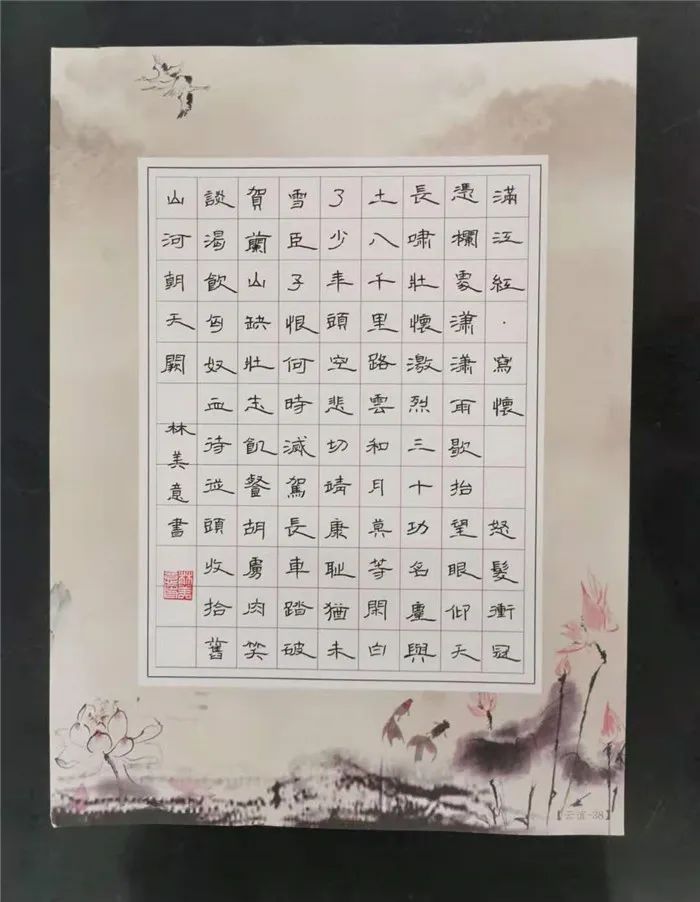 滿江紅·寫懷 怒髮衝冠
憑欄處瀟瀟雨歇抬望眼仰天
長嘯壯懷激烈三十功名塵與
土八千里路雲和月莫等閑白
了少年頭空悲切靖康耻猶未
雪臣子恨何時滅駕長車踏破
賀蘭山缺壯志飢餐胡虜肉笑
談渴飲匈奴血待從頭收拾舊
山河朝天闕 林美意書
【云谊-38】